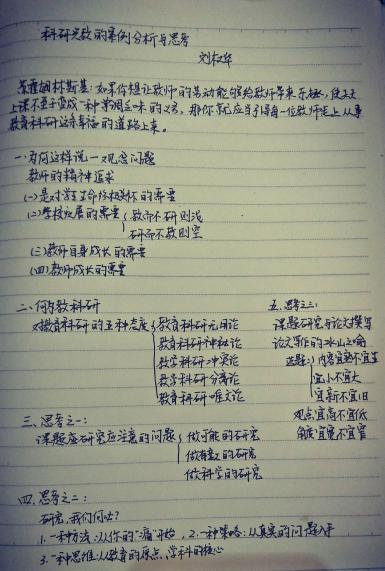 科研兴教的案例分析与思考
刘权华
苏霍姆林斯基：如果你想让教师的劳动能够给教师带来乐趣，使天天
上课不至于变成一种单调乏味的义务，那你就应当引导每一位教师走上从事
教育科研这条幸福的道路上来。
一、为何这样说—观念问题
教师的精神追求
（一）是对学生生命终极关怀的需要
（二）学校发展的需要 教而不研则浅
研而不教则空
（三）教师自身成长的需要
（四）教师成长的需要
二、何为教科研
对教育科研的五种态度 教育科研无用论
教育科研神秘论
教学科研冲突论
教学科研分离论
教育科研唯文论
三、思考之一：
课题应研究应注意的问题 做可能的研究
做有数的研究
做科学的研究
四、思考之二：
研究，我们何也？
1.一种方法：从你的“痛”开始，2.一种策略：从真实的问题入手
3.一种思维：从教育的原点、学科的核心
五、思考之三：
课题研究与论文撰写
论文写作的冰山之角
选题：1）内容宜熟不宜生
宜小不宜大
宜新不宜旧
观点宜高不宜低
角度宜宽不宜窄